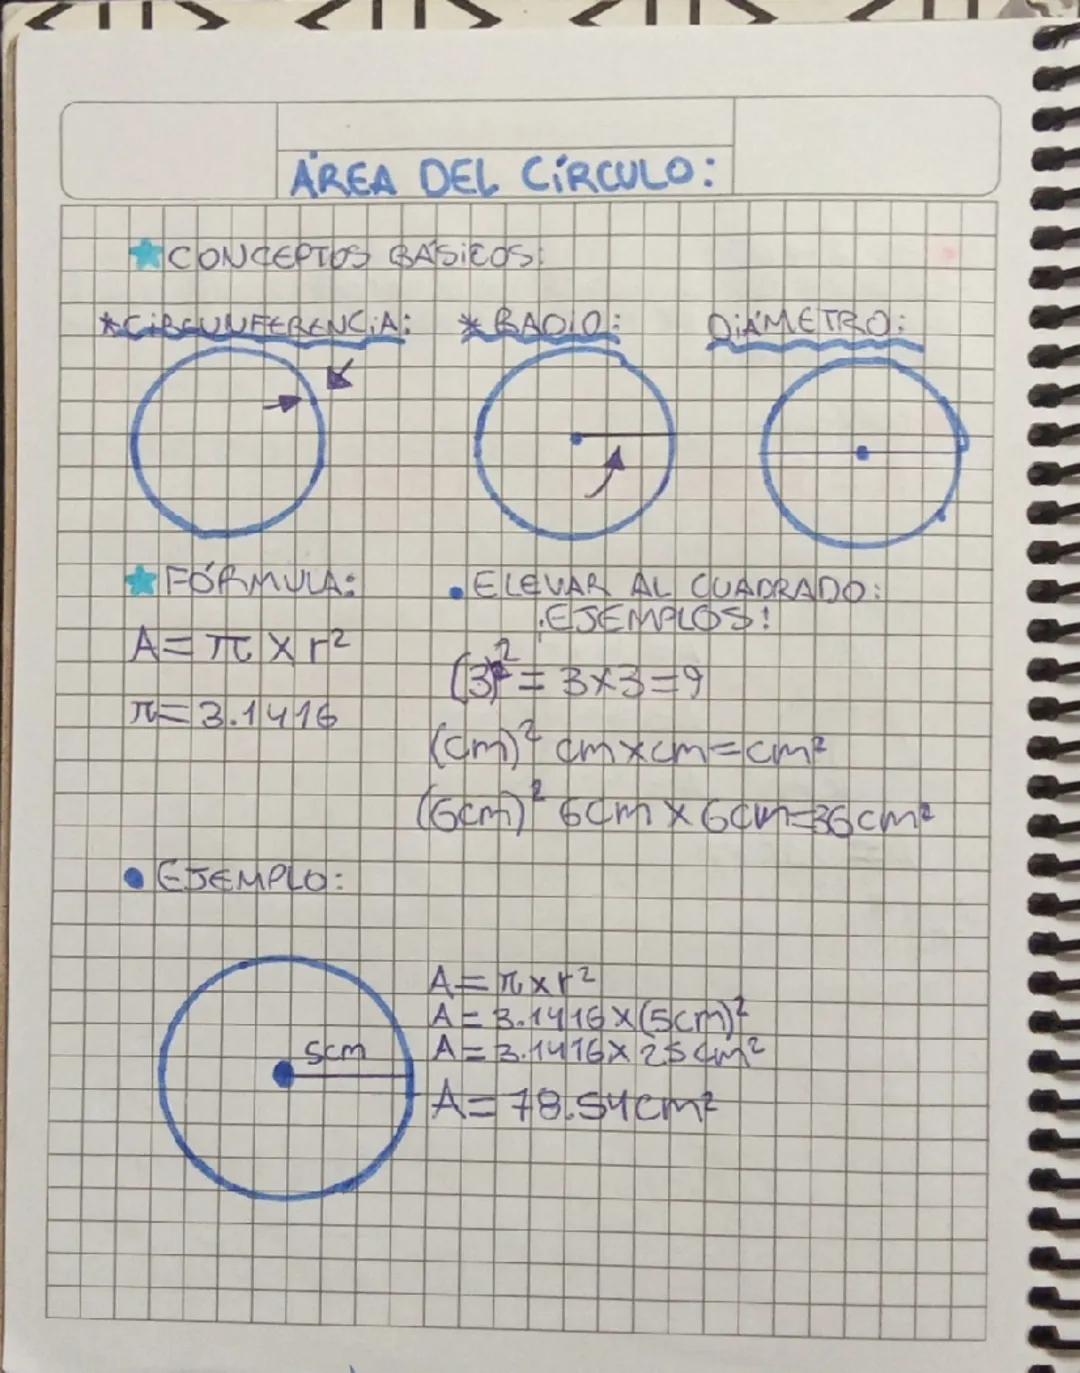 ÁREA DEL CÍRCULO:
CONCEPTOS BÁSICOS:
*CIRCUNFERENCIA: *RADIO: DIÁMETRO:
FÓRMULA: • ELEVAR AL CUADRADO:
EJEMPLOS:
A=π×r²
(3)²=3×3=9
π=3.1416
(cm)² cm×cm=cm²
(6cm)² 6cm×6cm=36cm²
• EJEMPLO:
A=π×r²
A=3.1416×(5cm)²
5cm A=3.1416×25cm²
A=78.54cm²